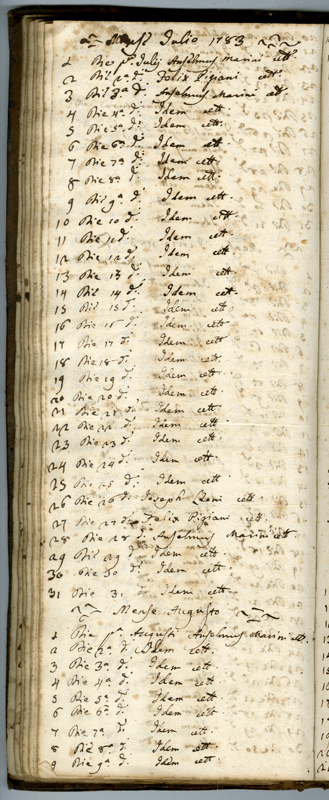 Mense Julio 1783
1 Die pa. Julij Anselmus Marini cett.
2 Die 2a. d: Felix Pisani cett.
3 Die 3a. d: Anselmus Marini cett.
4 Die 4a. d: Idem cett.
5 Die 5a. d: Idem cett.
6 Die 6a. d: Idem cett.
7 Die 7a. d: Idem cett.
8 Die 8a. d: Idem cett.
9 Die 9a. d: Idem cett.
10 Die 10 d: Idem cett.
11 Die 11 d: Idem cett.
12 Die 12 d: Idem cett.
13 Die 13 d: Idem cett.
14 Die 14 d: Idem cett.
15 Die 15 d: Idem cett.
16 Die 16 d: Idem cett.
17 Die 17 d: Idem cett.
18 Die 18 d: Idem cett.
19 Die 19 d: Idem cett.
20 Die 20 d: Idem cett.
21 Die 21 d: Idem cett.
22 Die 22 d: Idem cett.
23 Die 23 d: Idem cett.
24 Die 24 d: Idem cett.
25 Die 25 d: Idem cett.
26 Die 26 d: Joseph cett.
27 Die 27 d: Felix Pisani cett.
28 Die 28 d: Anselmus Marini cett.
29 Die 29 d: Idem cett.
30 Die 30 d: Idem cett.
31 Die 31 Idem cett.
Mense Augusto
1 Die pa. Augusti Anselmus Marini cett.
2 Die 2a. d: Idem cett.
3 Die 3a. d: Idem cett.
4 Die 4a. d: Idem cett.
5 Die 5a. d: Idem cett.
6 Die 6a. d: Idem cett.
7 Die 7a. d: Idem cett.
8 Die 8a. d: Idem cett.
9 Die 9a. d: Idem cett.